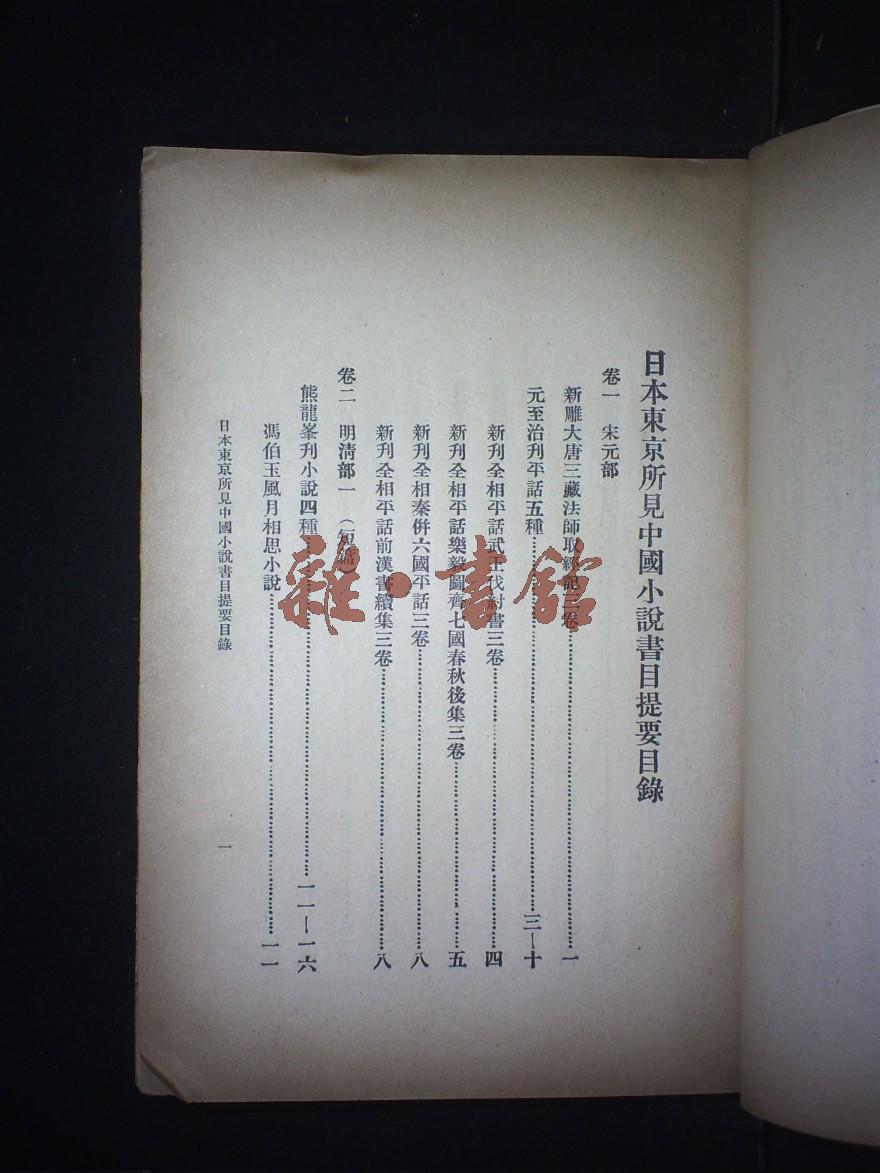 日本東京所見中國小說書目提要目錄
卷一 宋元部
新雕大唐三藏法師取經記三卷……一
元至治刊平話五種……三—十
新刊全相平話武王伐紂書三卷……四
新刊全相平話樂毅圖齊七國春秋後集三卷……五
新刊全相秦併六國平話三卷……八
新刊全相平話前漢書續集三卷……八
卷二 明清部一 (短篇)
熊龍峯刋小說四種……一一—一六
馮伯玉風月相思小說……一一
日本東京所見中國小說書目提要目錄
一
雜·書館